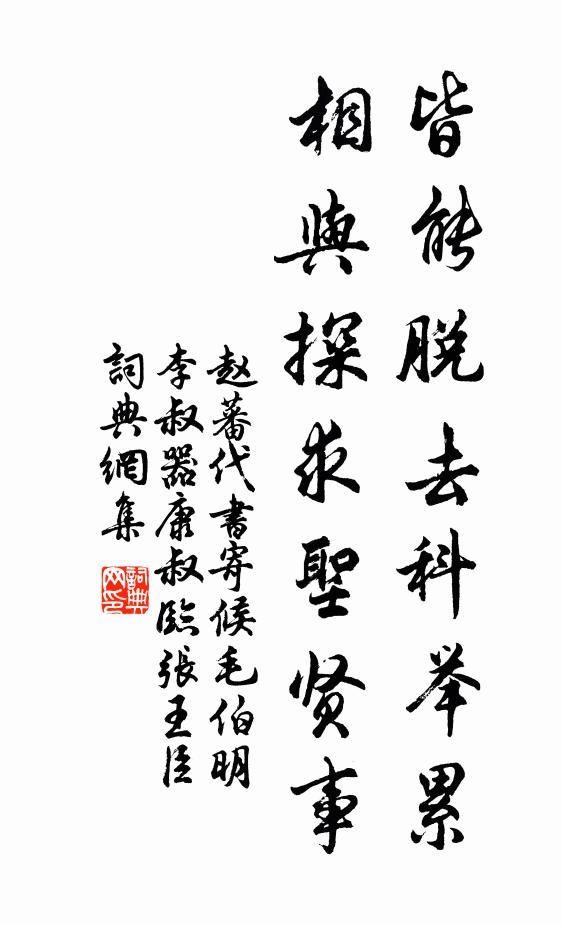 皆能脱去科举累
相與探求聖贤事
赵蕃代書寄候毛伯明
李叔器康叔臨張王臣
詞典網集
詞典网印